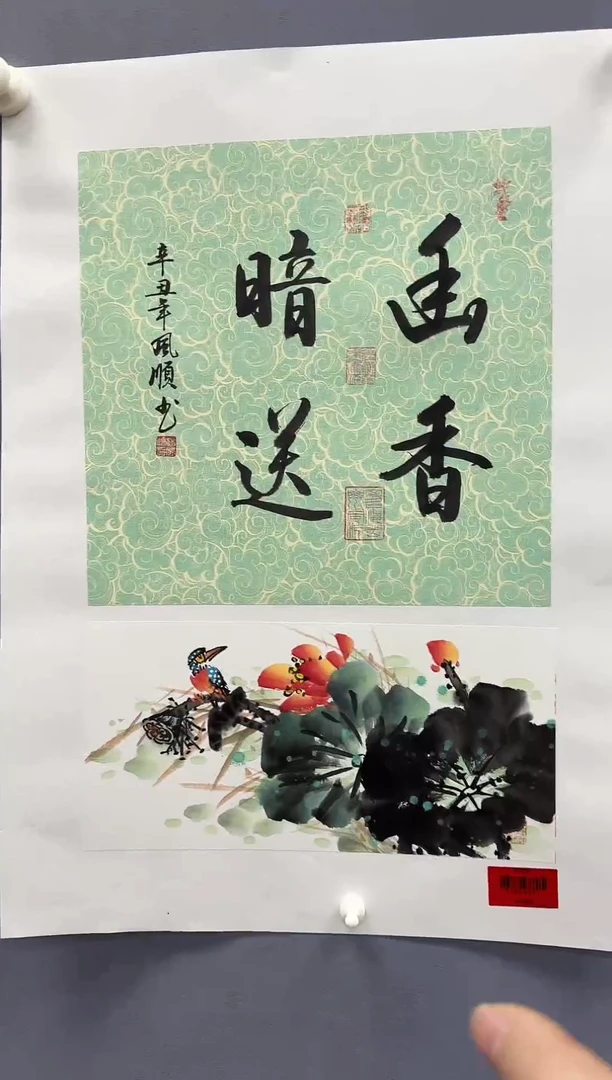 幽香
暗送
辛丑年風順书